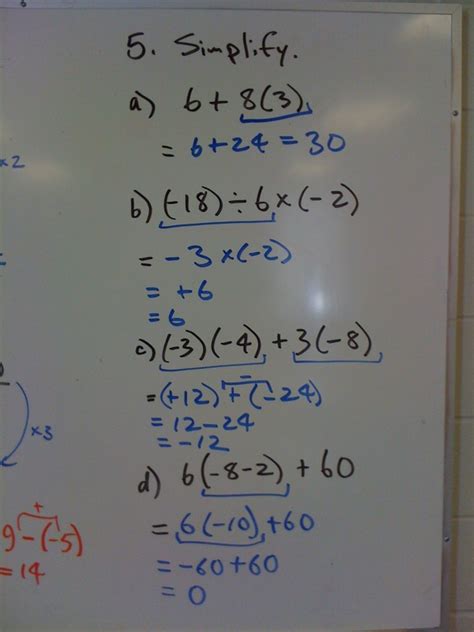 5. Simplify.
a) 6 + 8(3)
= 6 + 24 = 30
x2
b) (-18) ÷ 6 × (-2)
= -3 ×(-2)
= +6
= 6
c) (-3)(-4) + 3(-8)
-
= (+12) + (-24)
x3
= 12 - 24
= -12
d) 6(-8-2) + 60
+
9 - (-5)
= 14
= 6(-10) + 60
= -60 + 60
= 0